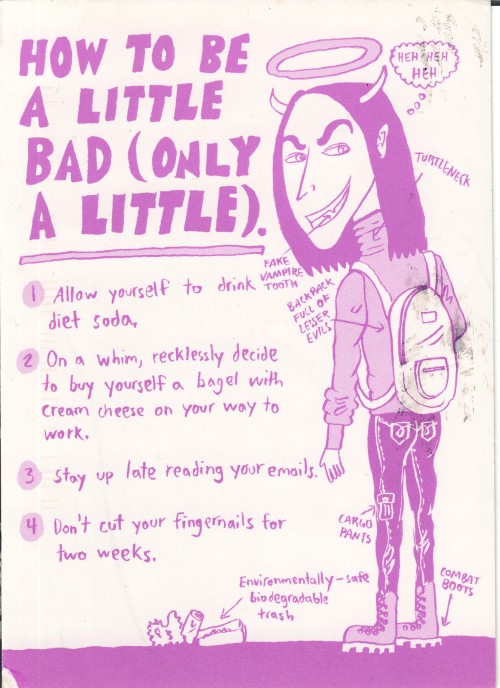 HOW TO BE
A LITTLE
BAD (ONLY
A LITTLE).
HEH HEH
HEH
TURTLENECK
FAKE
VAMPIRE
TOOTH
BACKPACK
FULL OF
LESSER
EVILS
1 Allow yourself to drink
diet soda.
2 On a whim, recklessly decide
to buy yourself a bagel with
cream cheese on your way to
work.
3 Stay up late reading your emails.
4 Don't cut your fingernails for
two weeks.
CARGO
PANTS
COMBAT
BOOTS
Environmentally-safe
biodegradable
trash